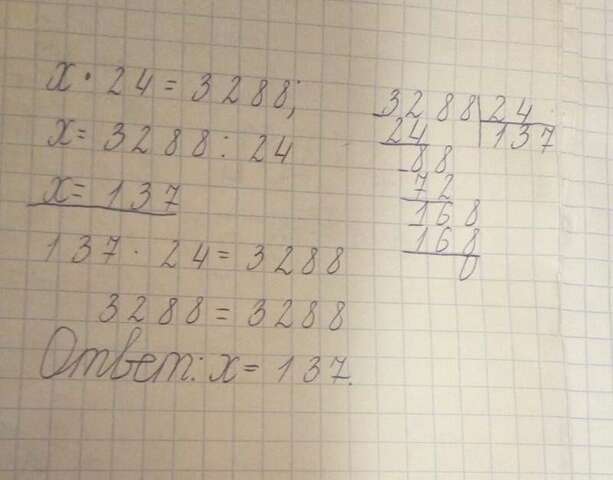 x · 24 = 3288;
x = 3288 : 24
x = 137
137 · 24 = 3288
3288 = 3288
Ответ: x = 137.
3288 24
24 137
88
72
168
168
0